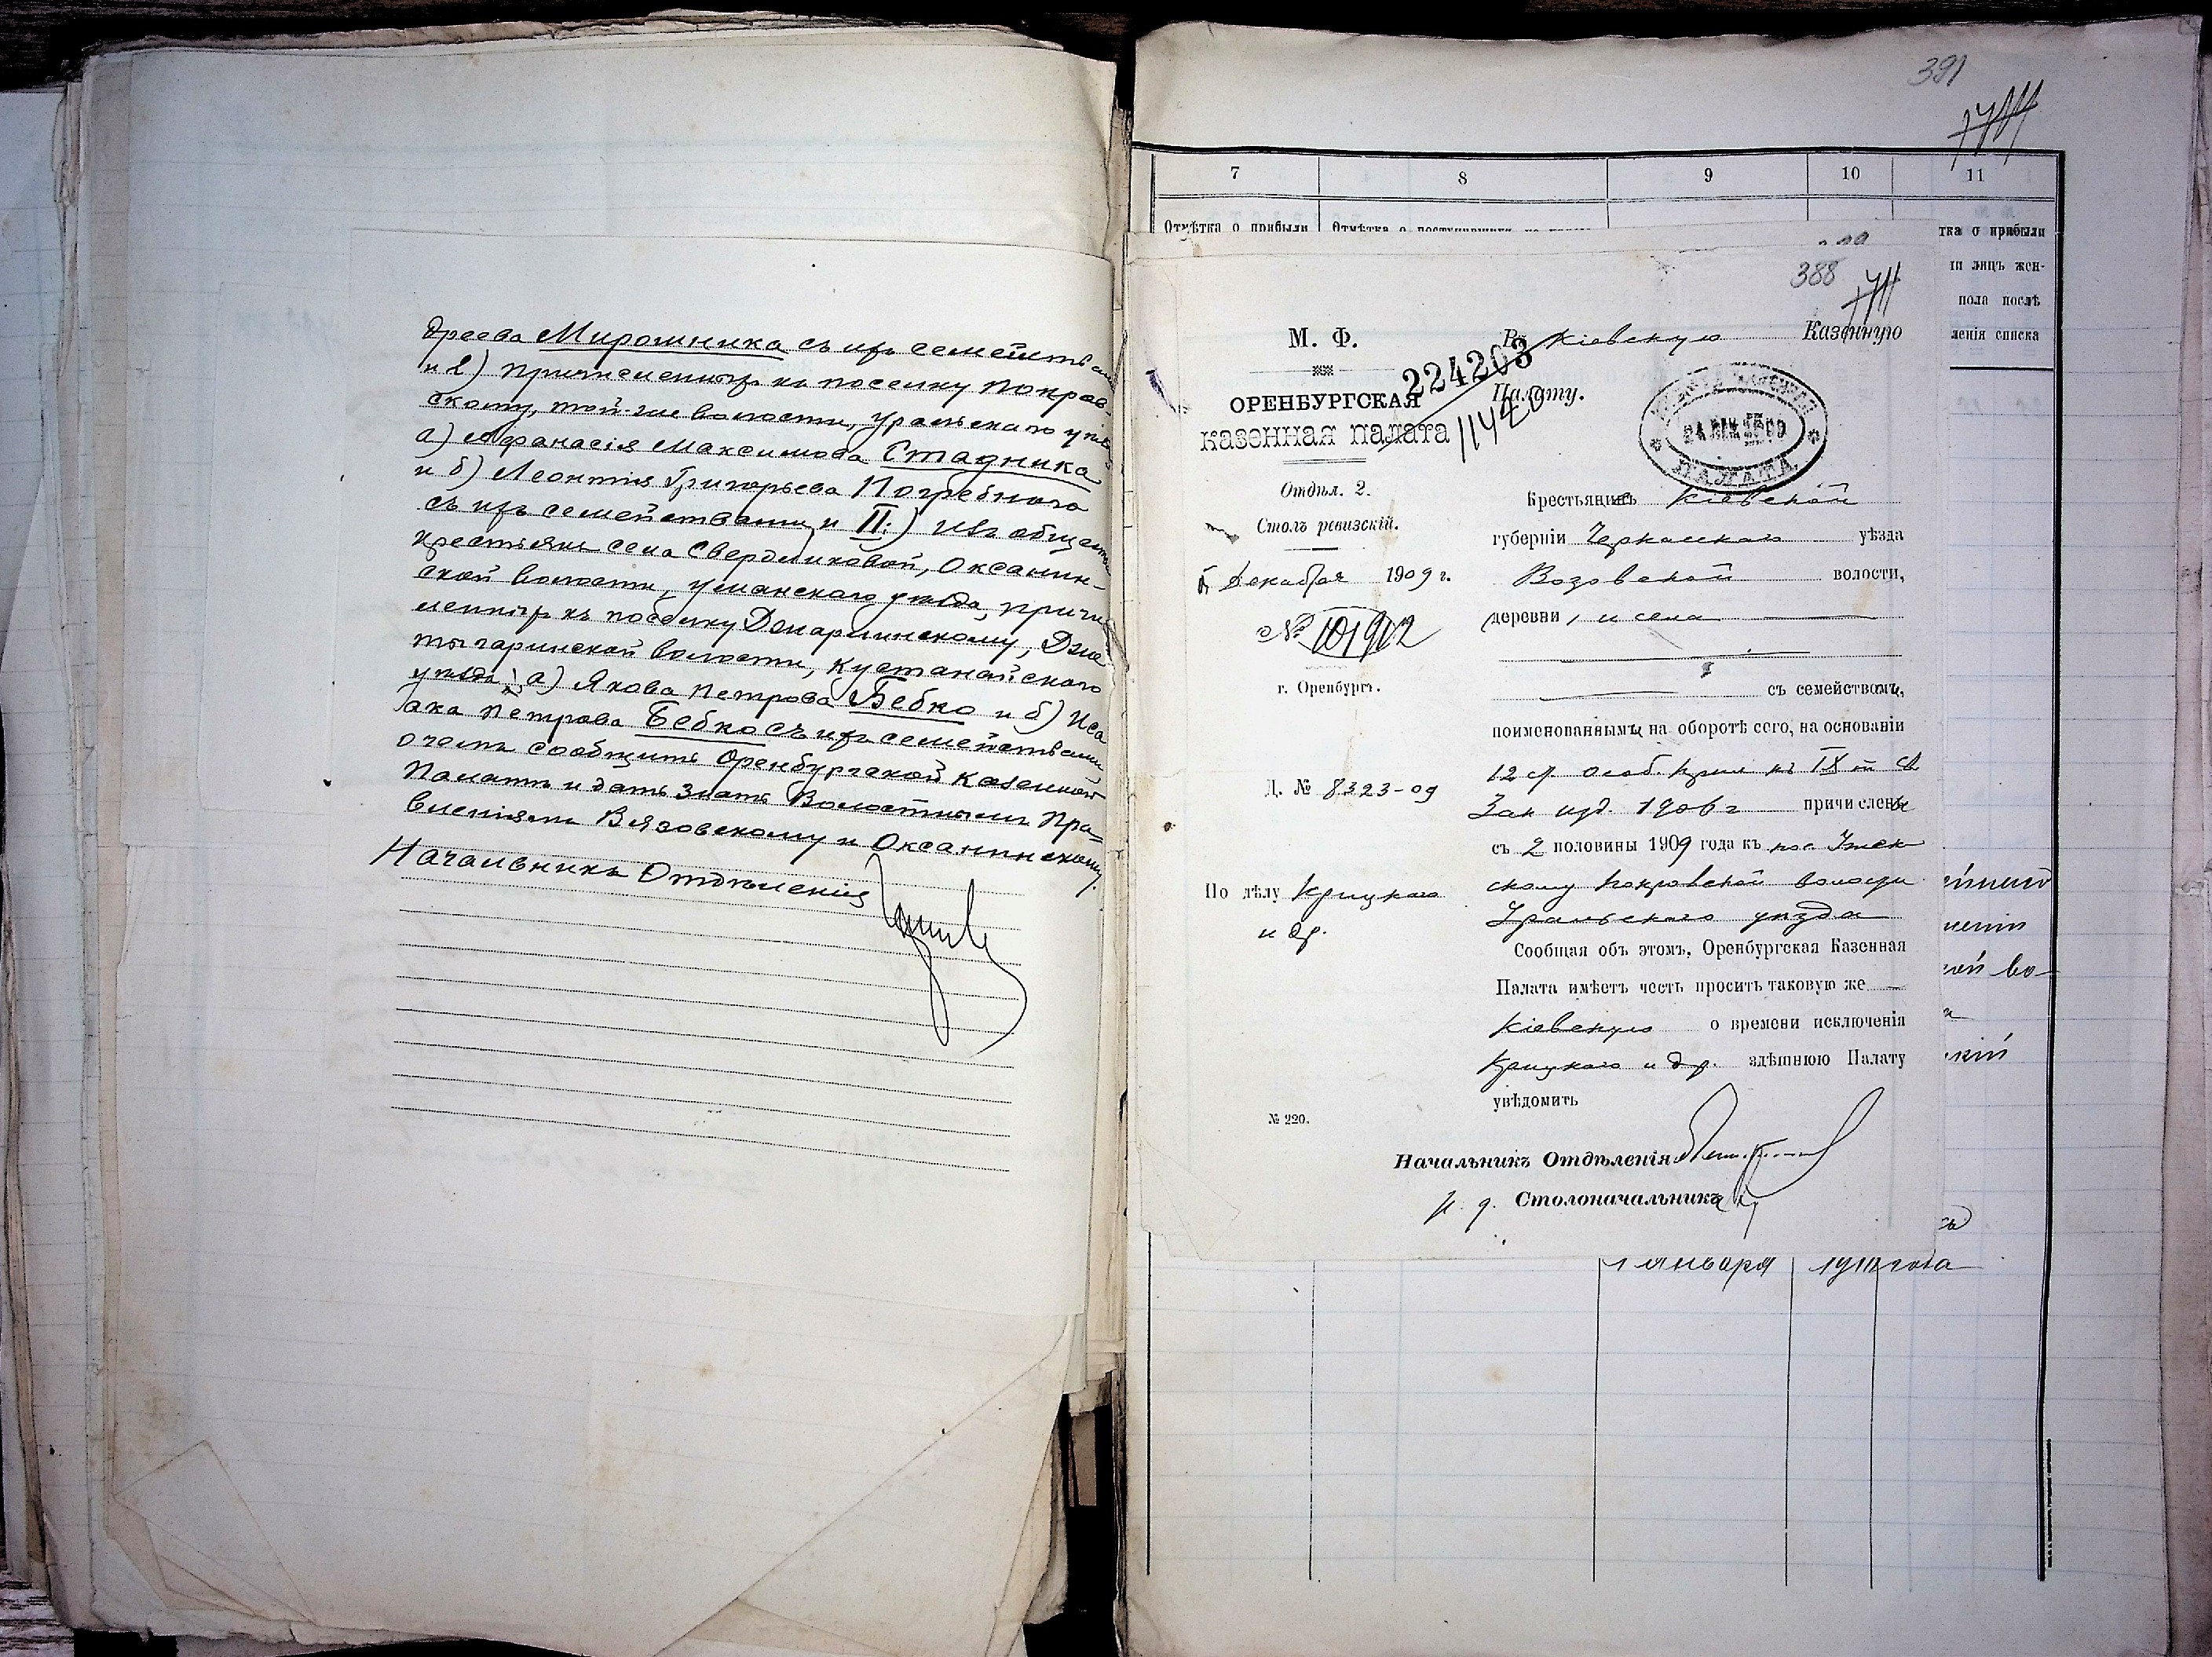 дреева Мирошника съ ихъ семейства
и 2) причисленныхъ къ поселку Покров-
скому, той-же волости, Уральскаго уѣз
а) Афанасія Максимова Стадника
и б) Леонтія Григорьева Погребного
съ ихъ семействами и II.) Изъ общест
крестьянъ села Свердликовой, Оксанин-
ской волости, Уманскаго уѣзда, причи
ленныхъ къ поселку Денаринскому, Дже
тыгаринской волости, Кустанайскаго
уѣзда: а) Якова Петрова Бебко и б) Иса
ака Петрова Бебко съ ихъ семействами
о чемъ сообщить Оренбургской Казенной
Палатѣ и дать знать Волостнымъ Пра-
вленіямъ Вязовскому и Оксанинскому.
Начальникъ Отдѣленія
391
7 8 9 10 11
Отмѣтка о прибыли Отмѣтка о поступившихъ
тка о прибыли
ли лицъ жен-
пола послѣ
ленія списка
388
М. Ф.
ОРЕНБУРГСКАЯ
КАЗЕННАЯ ПАЛАТА
Отдѣл. 2.
Столъ ревизскій.
Декабря 1909 г.
№ 101912
г. Оренбургъ.
Д. № 8323-09
По дѣлу Крицкаго
и др.
№ 220.
Въ Кіевскую Казенную
224203
Палату.
11420
ПАЛАТА
Крестьянинъ Кіевской
губерніи Черкасскаго уѣзда
Вязовской волости,
деревни, и села
съ семействами,
поименованнымъ на оборотѣ сего, на основаніи
12 ст. особ. прил. къ IX т. Св
Зак изд. 1906 г причислены
съ 2 половины 1909 года къ пос
скому Покровской волости
Уральскаго уѣзда
Сообщая объ этомъ, Оренбургская Казенная
Палата имѣетъ честь просить таковую же
Кіевскую о времени исключенія
Крицкаго и др. здѣшнюю Палату
увѣдомить
Начальникъ Отдѣленія
И. д. Столоначальника
1 января 1910 года